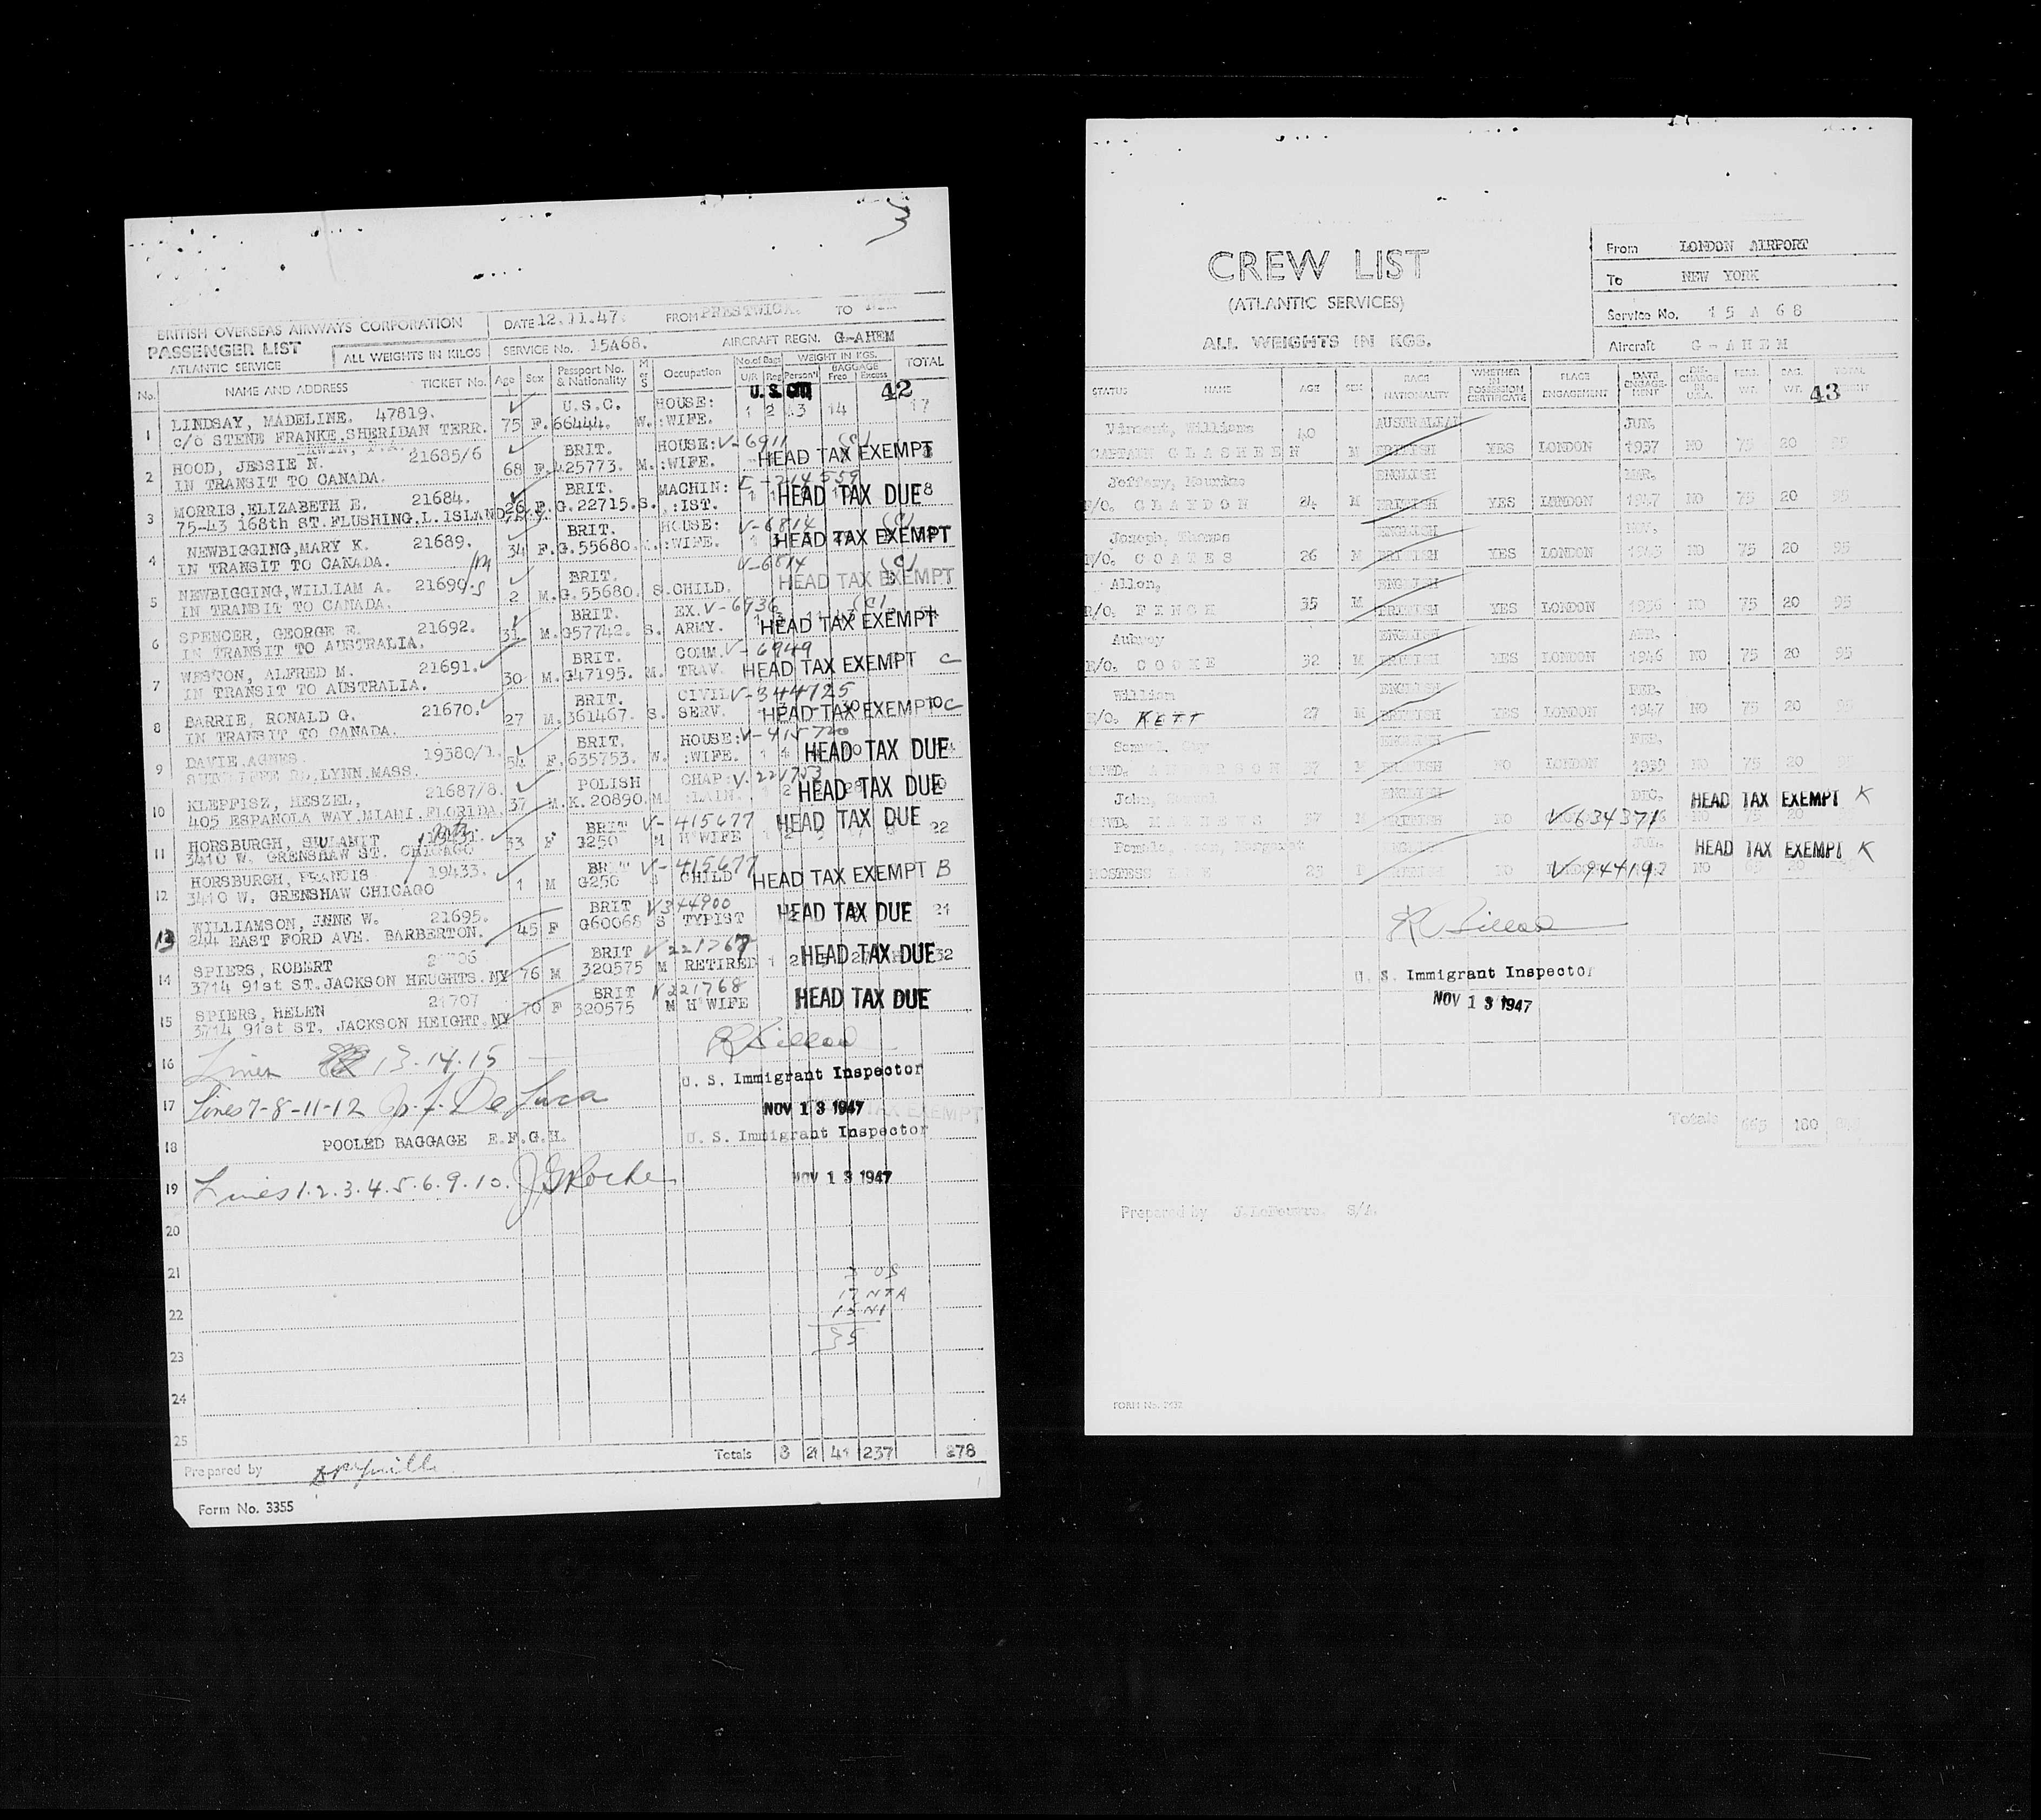 BRITISH OVERSEAS AIRWAYS CORPORATION
PASSENGER LIST
ATLANTIC SERVICE
ALL WEIGHTS IN KILOS
DATE 12.11.47. FROM PRESTWICK. TO
SERVICE No. 15A68. AIRCRAFT REGN. G-AHEM
No. NAME AND ADDRESS TICKET No. Age Sex Passport No. & Nationality M or S Occupation No. of Bags U/R Reg Person'l WEIGHT IN KGS. BAGGAGE Free Excess TOTAL
42
1 LINDSAY, MADELINE. 47819. 75 F. U.S.C. 66444. W. HOUSE: :WIFE. 1 2 3 14 17
c/o STENE FRANKE, SHERIDAN TERR.
2 HOOD, JESSIE N. 21685/6 68 F. BRIT. 425773. M. HOUSE: :WIFE. V-6911 (C) HEAD TAX EXEMPT
IN TRANSIT TO CANADA.
3 MORRIS, ELIZABETH E. 21684. 26 F. BRIT. G.22715. S. MACHIN: :IST. HEAD TAX DUE
75-43 168th ST. FLUSHING, L. ISLAND
4 NEWBIGGING, MARY K. 21689. 34 F. BRIT. G.55680. HOUSE: :WIFE. V-6814 (C) HEAD TAX EXEMPT
IN TRANSIT TO CANADA.
5 NEWBIGGING, WILLIAM A. 21690. 2 M. BRIT. G.55680. S. CHILD. V-6814 (C) HEAD TAX EXEMPT
IN TRANSIT TO CANADA.
6 SPENCER, GEORGE E. 21692. 31 M. BRIT. G57742. S. EX. ARMY. V-6936 (C) HEAD TAX EXEMPT
IN TRANSIT TO AUSTRALIA.
7 WESTON, ALFRED M. 21691. 30 M. BRIT. G47195. M. COMM. TRAV. V-6949 HEAD TAX EXEMPT C
IN TRANSIT TO AUSTRALIA.
8 BARRIE, RONALD G. 21670. 27 M. BRIT. 361467. S. CIVIL SERV. V-344725 HEAD TAX EXEMPT C
IN TRANSIT TO CANADA.
9 DAVIE, AGNES. 19380/1. 54 F. BRIT. 635753. W. HOUSE: :WIFE. V-415720 HEAD TAX DUE
LYNN, MASS.
10 KLEPFISZ, HESZEL, 21687/8. 37 M. POLISH K. 20890. M. CHAP: :LAIN. V-221753 HEAD TAX DUE
405 ESPANOLA WAY, MIAMI, FLORIDA.
11 HORSBURGH, SHULAMIT 33 F BRIT G250 M H'WIFE V-415677 HEAD TAX DUE 22
3410 W. GRENSHAW ST. CHICAGO
12 HORSBURGH, FRANCIS 19433. 1 M BRIT G250 S CHILD V-415677 HEAD TAX EXEMPT B
3410 W. GRENSHAW CHICAGO
13 WILLIAMSON, ANNE W. 21695. 45 F BRIT G60068 S TYPIST V344900 HEAD TAX DUE 21
244 EAST FORD AVE. BARBERTON.
14 SPIERS, ROBERT 76 M BRIT 320575 M RETIRED V221767 HEAD TAX DUE 32
3714 91st ST. JACKSON HEUGHTS. NY
15 SPIERS, HELEN 21707 70 F BRIT 320575 M H'WIFE V221768 HEAD TAX DUE
3714 91st ST. JACKSON HEIGHT. NY
16 Lines 13.14.15
U. S. Immigrant Inspector
17 Lines 7-8-11-12 De Luca
NOV 13 1947
18 POOLED BAGGAGE E.F.G.H.
U. S. Immigrant Inspector
19 Lines 1.2.3.4.5.6.9.10. Roche
NOV 13 1947
20
21
17 NTA
22
35
23
24
25
Totals 8 21 41 237 278
Prepared by
Form No. 3355
CREW LIST
(ATLANTIC SERVICES)
ALL WEIGHTS IN KGS.
From LONDON AIRPORT
To NEW YORK
Service No. 15 A 68
Aircraft G-AHEM
STATUS NAME AGE SEX RACE NATIONALITY WHETHER IN POSSESSION CERTIFICATE PLACE ENGAGEMENT DATE ENGAGEMENT DISCHARGE IN U.S.A. PERS. WT. BAG. WT. TOTAL
43
Vincent, Williams AUSTRALIAN JUN.
CAPTAIN GLASHEEN 40 M BRITISH YES LONDON 1937 NO 75 20 95
Jeffery, ENGLISH MAR.
24 M BRITISH YES LONDON 1947 NO 75 20 95
Joseph, Thomas ENGLISH NOV.
COATES 26 M BRITISH YES LONDON NO 75 20 95
Allen, ENGLISH
R/O. FENCH 35 M BRITISH YES LONDON 1936 NO 75 20 95
Aubrey ENGLISH
R/O. COOKE 32 M BRITISH YES LONDON 1946 NO 75 20 95
William ENGLISH FEB.
KETT 27 M BRITISH YES LONDON 1947 NO 75 20 95
Samuel, Guy ENGLISH FEB.
37 M BRITISH NO LONDON 1939 NO 75 20 95
John, Samuel ENGLISH DEC. HEAD TAX EXEMPT K
37 M BRITISH NO V634371 NO 75 20
HEAD TAX EXEMPT K
HOSTESS 25 F NO V944192 NO
U. S. Immigrant Inspector
NOV 13 1947
Totals 665 180
Prepared by
FORM No.